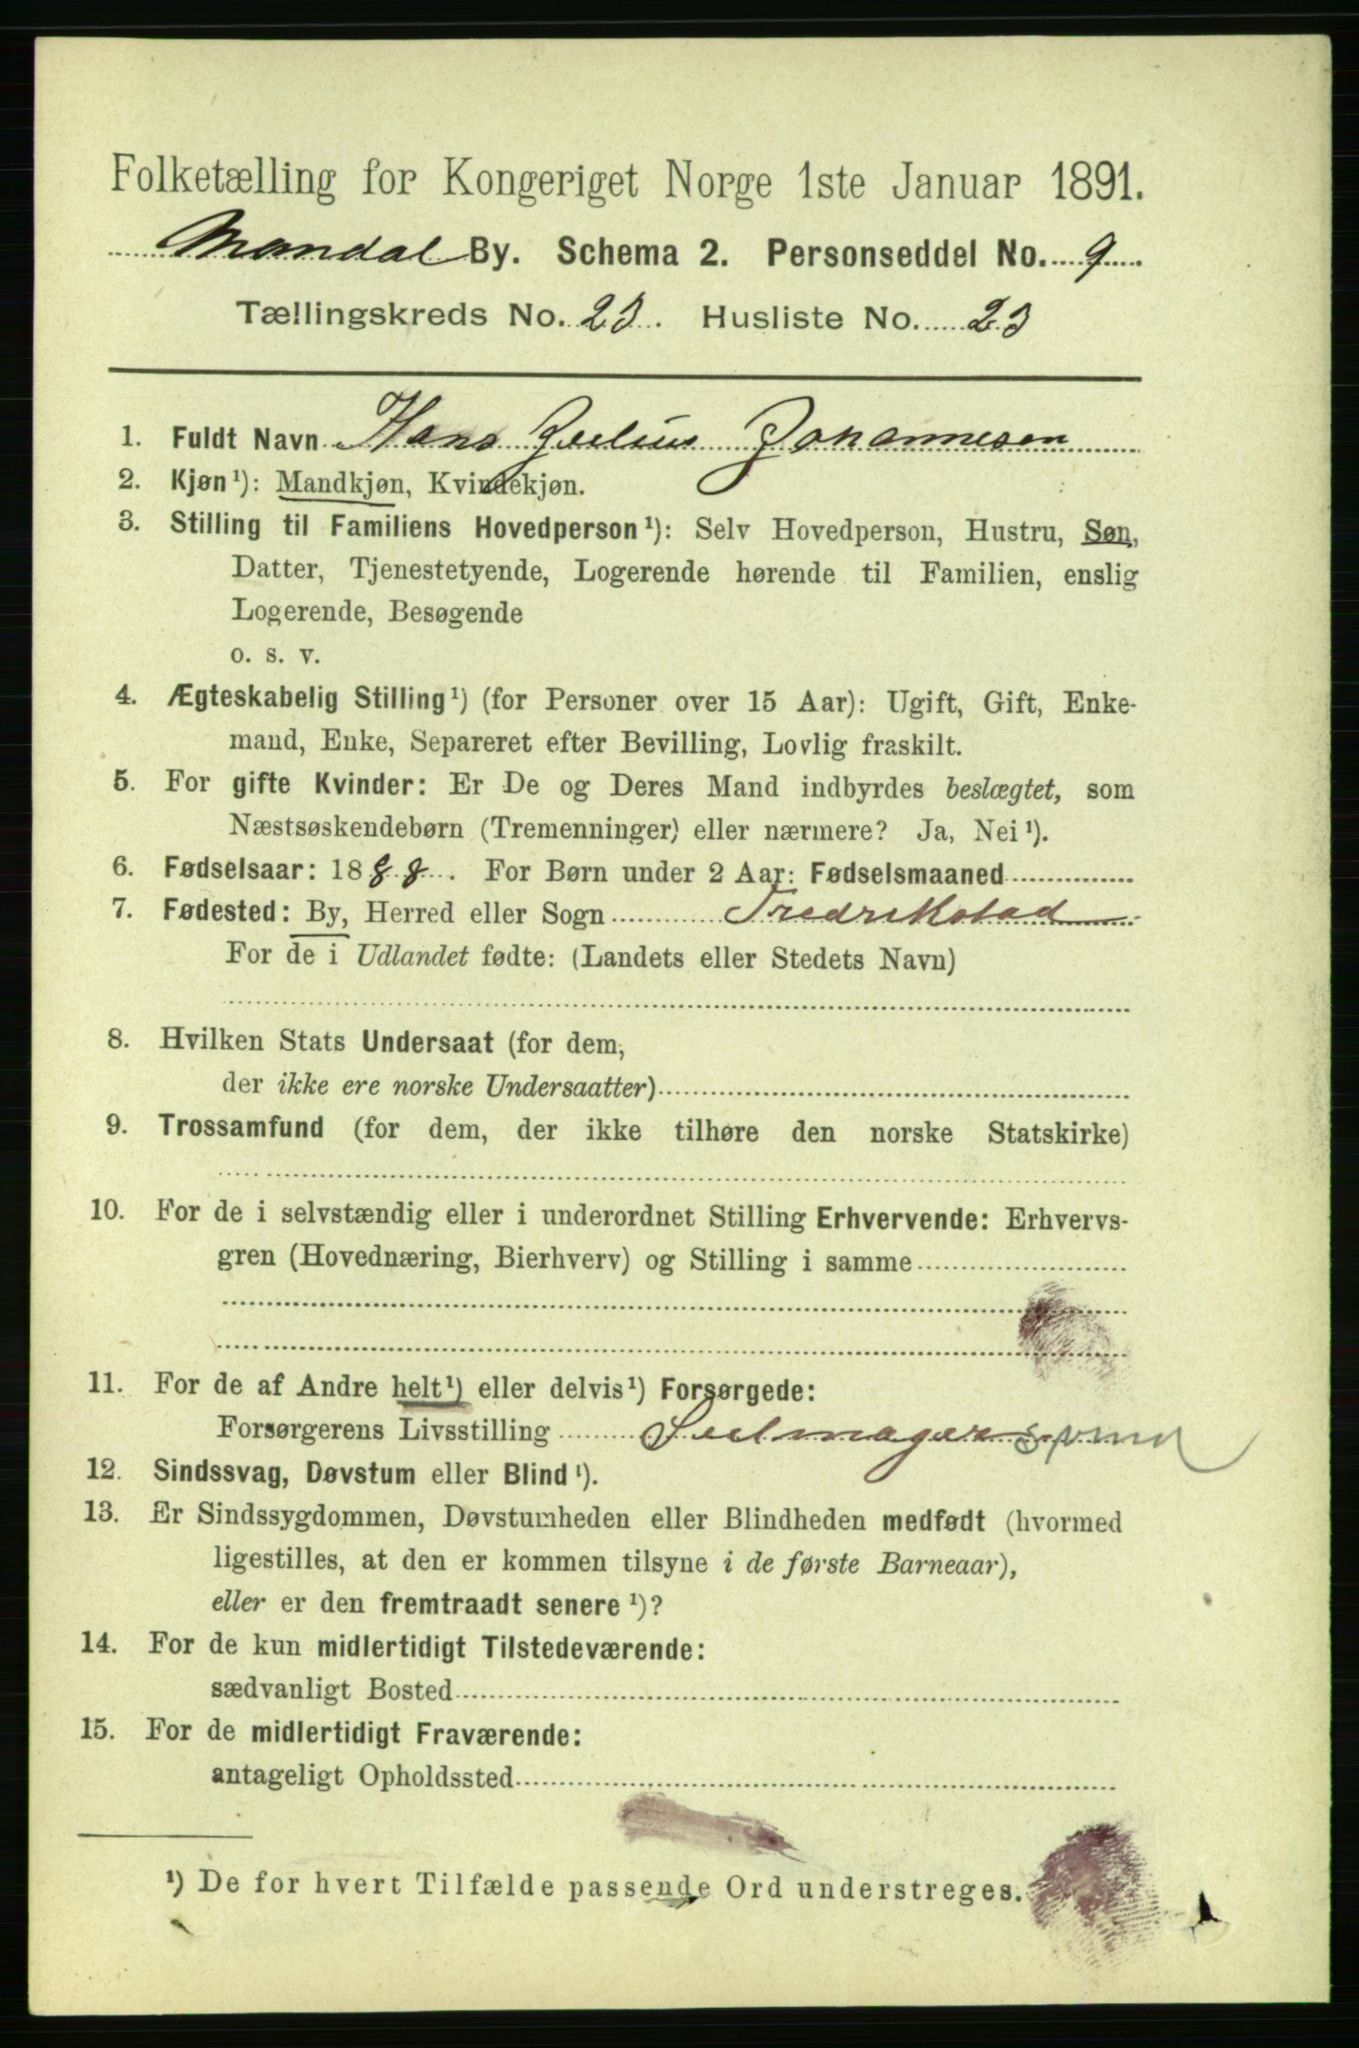 Folketælling for Kongeriget Norge 1ste Januar 1891.
Mandal By. Schema 2. Personseddel No. 9
Tællingskreds No. 23. Husliste No. 23
1. Fuldt Navn Hans Julius Johannesen
2. Kjøn¹): Mandkjøn, Kvindekjøn.
3. Stilling til Familiens Hovedperson¹): Selv Hovedperson, Hustru, Søn,
Datter, Tjenestetyende, Logerende hørende til Familien, enslig
Logerende, Besøgende
o. s. v.
4. Ægteskabelig Stilling¹) (for Personer over 15 Aar): Ugift, Gift, Enke-
mand, Enke, Separeret efter Bevilling, Lovlig fraskilt.
5. For gifte Kvinder: Er De og Deres Mand indbyrdes beslægtet, som
Næstsøskendebørn (Tremenninger) eller nærmere? Ja, Nei¹).
6. Fødselsaar: 1888. For Børn under 2 Aar: Fødselsmaaned
7. Fødested: By, Herred eller Sogn Fredrikstad
For de i Udlandet fødte: (Landets eller Stedets Navn)
8. Hvilken Stats Undersaat (for dem,
der ikke ere norske Undersaatter)
9. Trossamfund (for dem, der ikke tilhøre den norske Statskirke)
10. For de i selvstændig eller i underordnet Stilling Erhvervende: Erhvervs-
gren (Hovednæring, Bierhverv) og Stilling i samme
11. For de af Andre helt¹) eller delvis¹) Forsørgede:
Forsørgerens Livsstilling Seilmager
12. Sindssvag, Døvstum eller Blind¹).
13. Er Sindssygdommen, Døvstumheden eller Blindheden medfødt (hvormed
ligestilles, at den er kommen tilsyne i de første Barneaar),
eller er den fremtraadt senere¹)?
14. For de kun midlertidigt Tilstedeværende:
sædvanligt Bosted
15. For de midlertidigt Fraværende:
antageligt Opholdssted
¹) De for hvert Tilfælde passende Ord understreges.